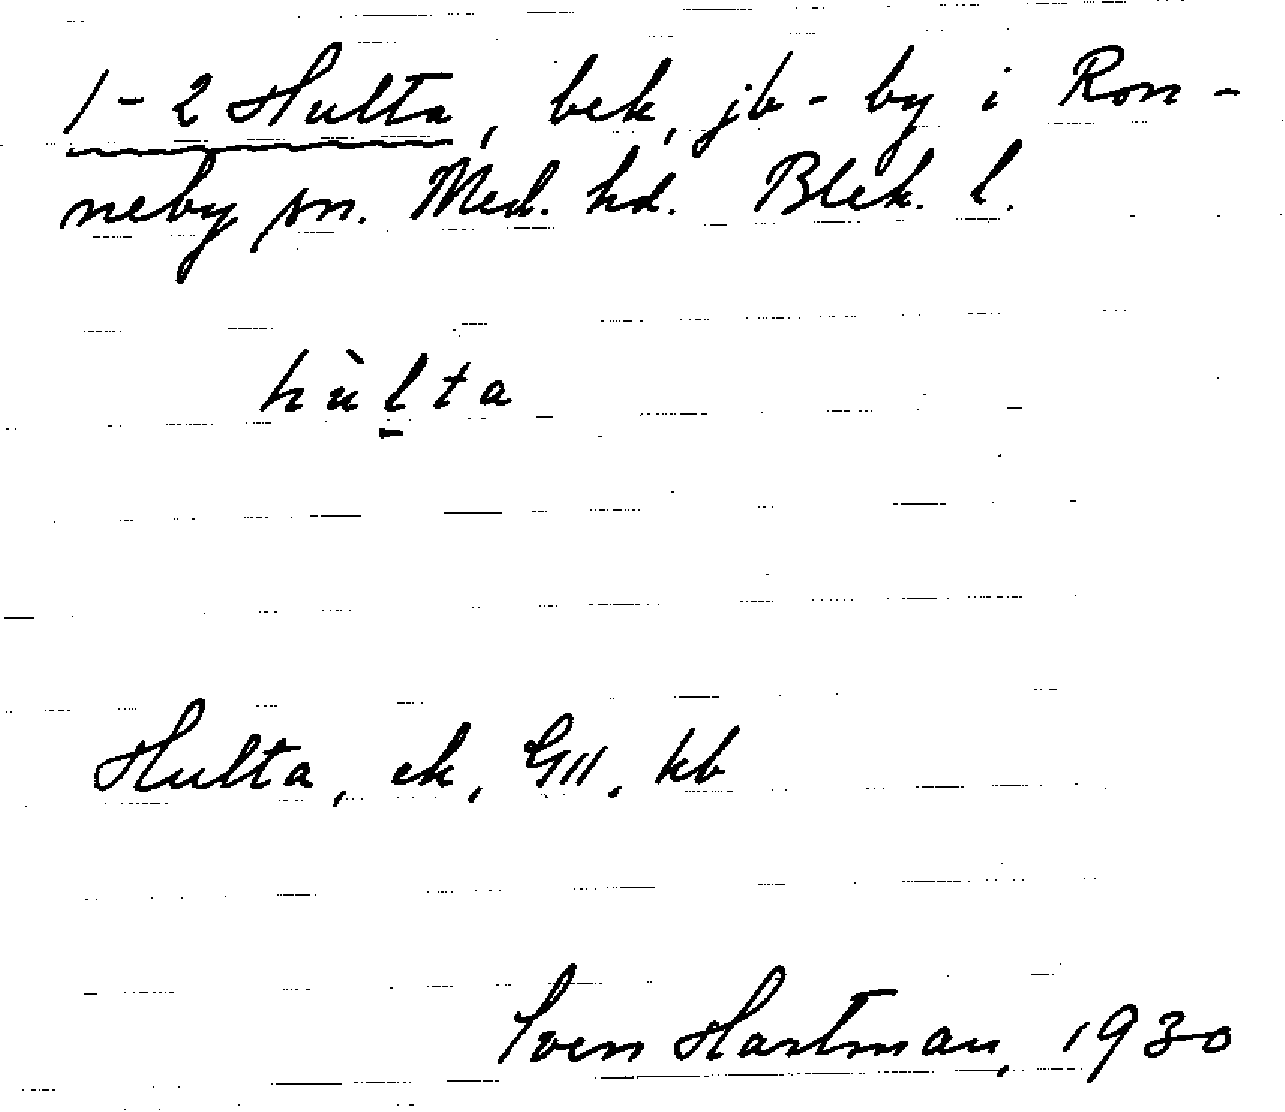 1-2 Hulta, bek, jb-by i Ron-
neby sn. Med. hd. Blek. l.
hùl̠ta
Hulta, ek, GII, kb
Sven Hartman, 1930